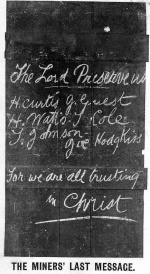 The Lord Preserve us
H. Curtis J. Guest
H. Watkis T. Cole
J. Johnson
Joe Hodgkiss
For we are all trusting
in Christ
THE MINERS' LAST MESSAGE.